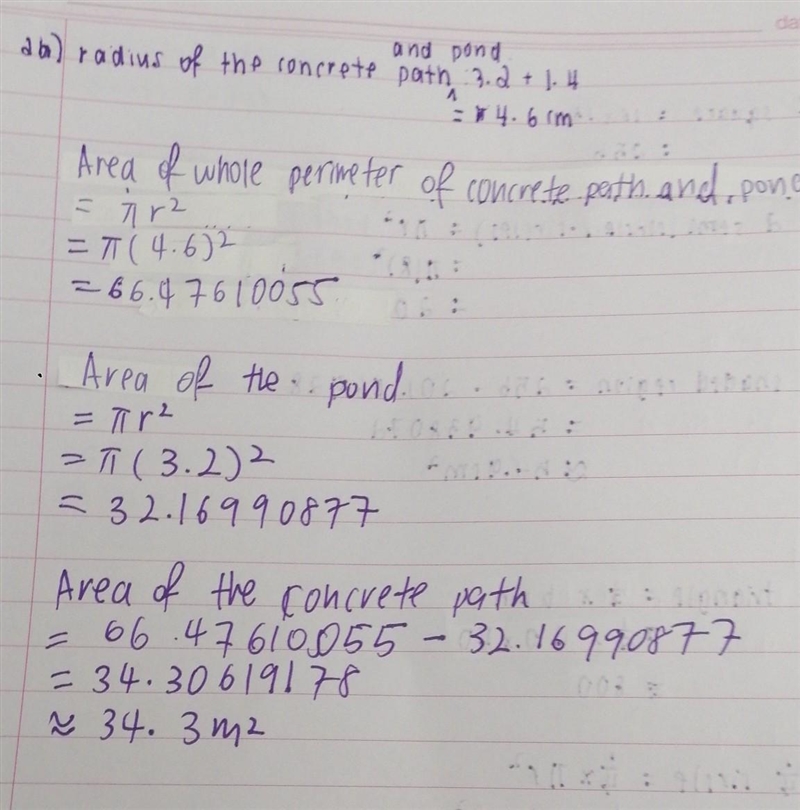 da
2a) radius of the concrete path and pond : 3.2 + 1.4
= 4.6 cm
Area of whole perimeter of concrete path and pond
= πr²
= π(4.6)²
= 66.47610055
Area of the pond.
= πr²
= π(3.2)²
= 32.16990877
Area of the concrete path
= 66.47610055 - 32.16990877
= 34.30619178
≈ 34.3m²